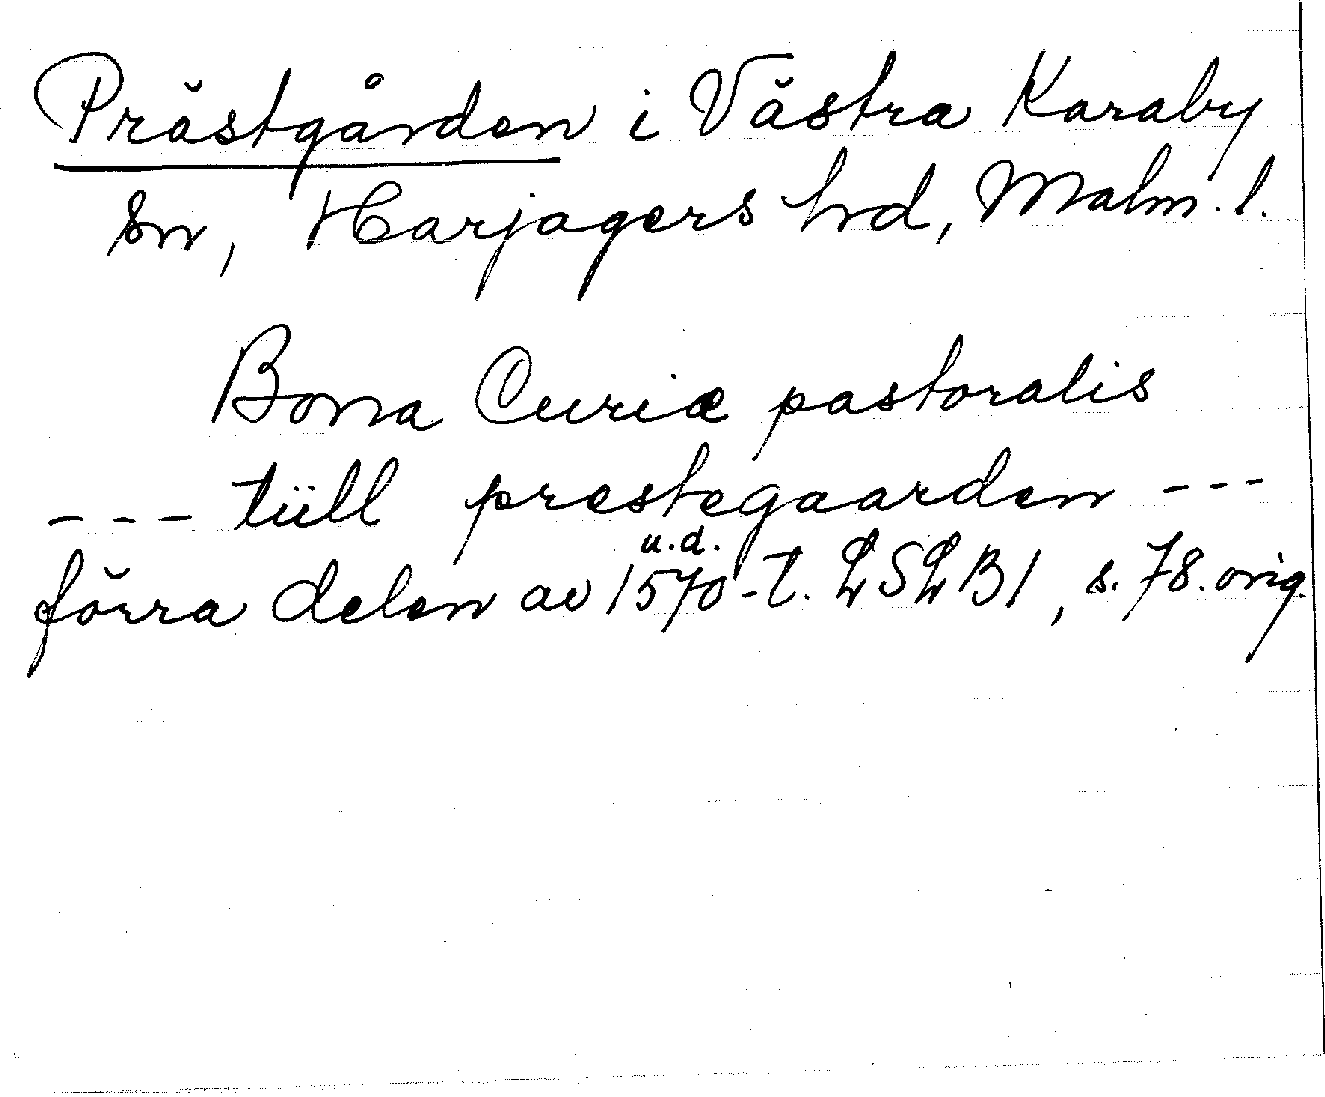 Prästgården i Västra Karaby
sn, Harjagers hd, Malm. l.
Bona Curiæ pastoralis
--- tiill prestegaarden ---
u.d.
förra delen av 1570-t. LSLB1, s. 78. orig.